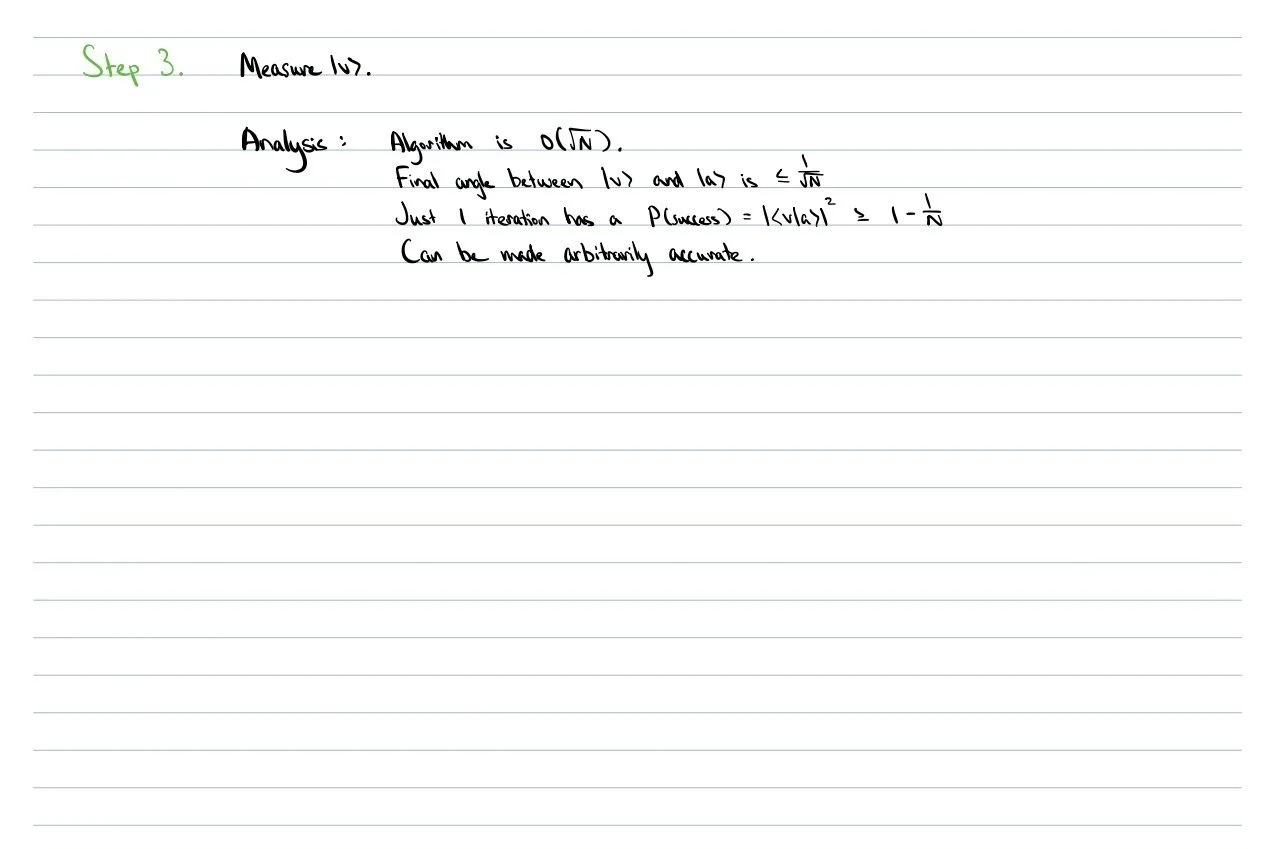 Step 3. Measure |v⟩.
Analysis: Algorithm is O(√N).
Final angle between |v⟩ and |a⟩ is ≤ 1/√N
Just 1 iteration has a P(success) = |⟨v|a⟩|² ≥ 1 - 1/N
Can be made arbitrarily accurate.